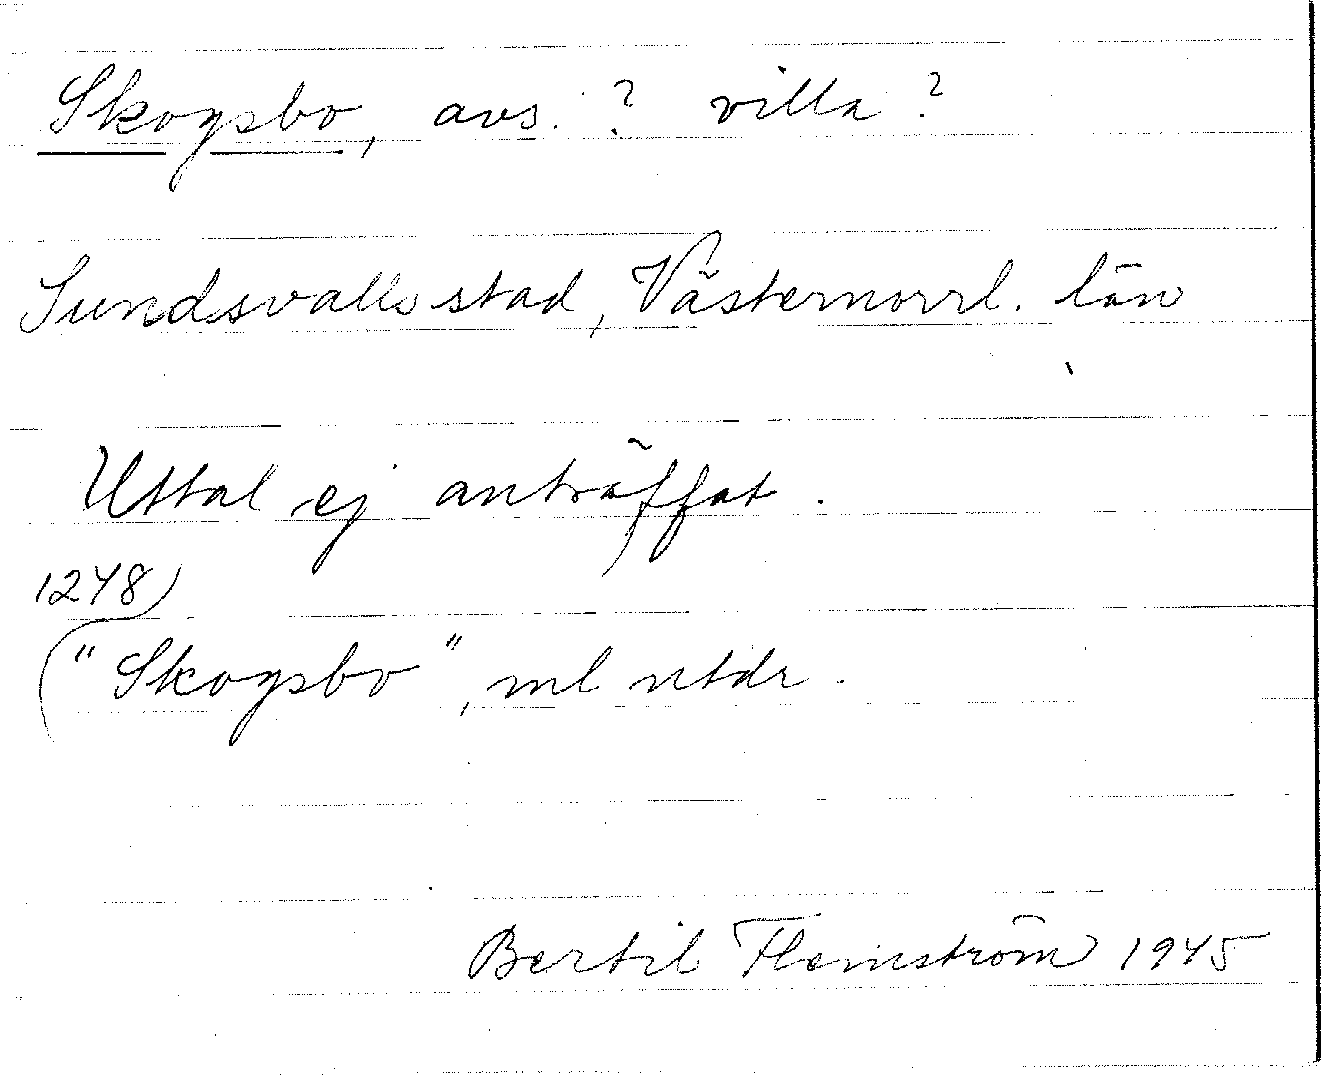 Skogsbo, avs. ? villa ?
Sundsvalls stad, Västernorrl. län
Uttal ej anträffat.
1248)
("Skogsbo", ml utdr.
Bertil Flemström 1945